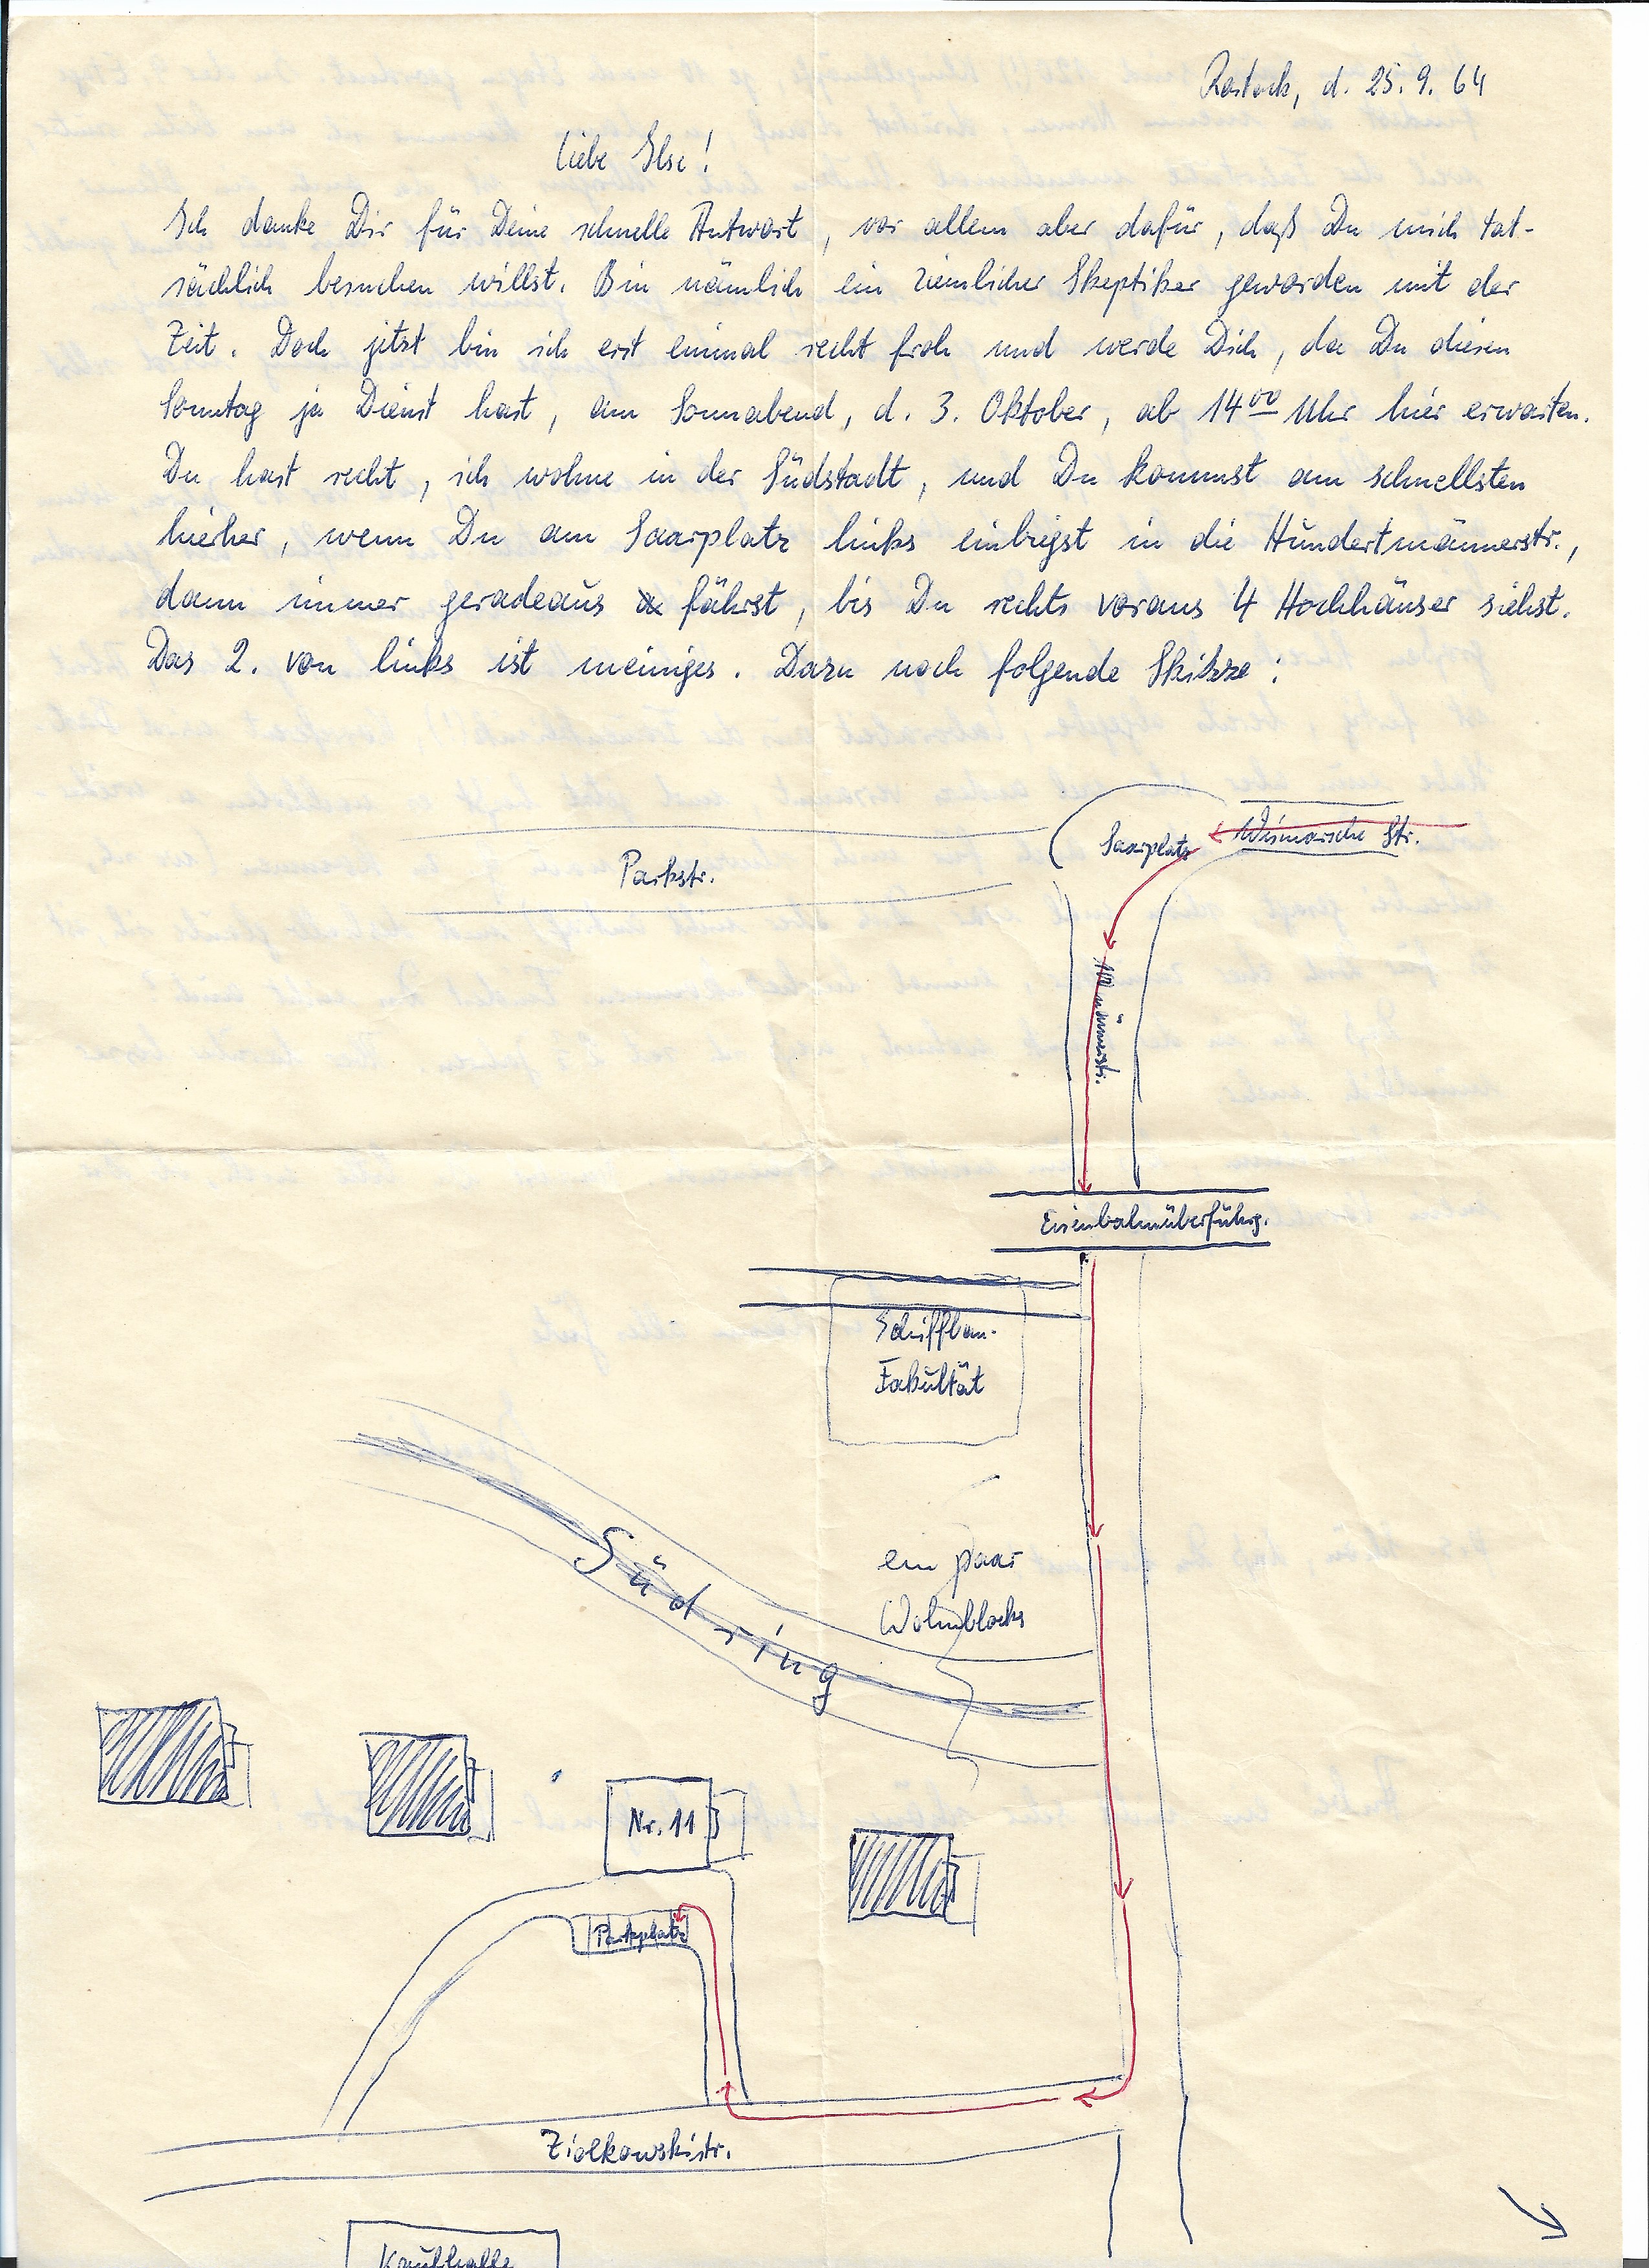 Rostock, d. 25. 9. 64
Liebe Ilse!
Ich danke Dir für Deine schnelle Antwort, vor allem aber dafür, daß Du mich tat-
sächlich besuchen willst. Bin nämlich ein ziemlicher Skeptiker geworden mit der
Zeit. Doch jetzt bin ich erst einmal recht froh und werde Dich, da Du diesen
Sonntag ja Dienst hast, am Sonnabend, d. 3. Oktober, ab 14⁰⁰ Uhr hier erwarten.
Du hast recht, ich wohne in der Südstadt, und Du kommst am schnellsten
hierher, wenn Du am Saarplatz links einbiegst in die Hundertmännerstr.,
dann immer geradeaus fährst, bis Du rechts voraus 4 Hochhäuser siehst.
Das 2. von links ist meiniges. Dazu noch folgende Skizze:
Wismarsche Str.
Saarplatz
Parkstr.
100 männerstr.
Eisenbahnüberführg.
Schiffbau-
Fakultät
ein paar
Wohnblocks
Südring
Nr. 11
Parkplatz
Ziolkowskistr.
Kaufhalle